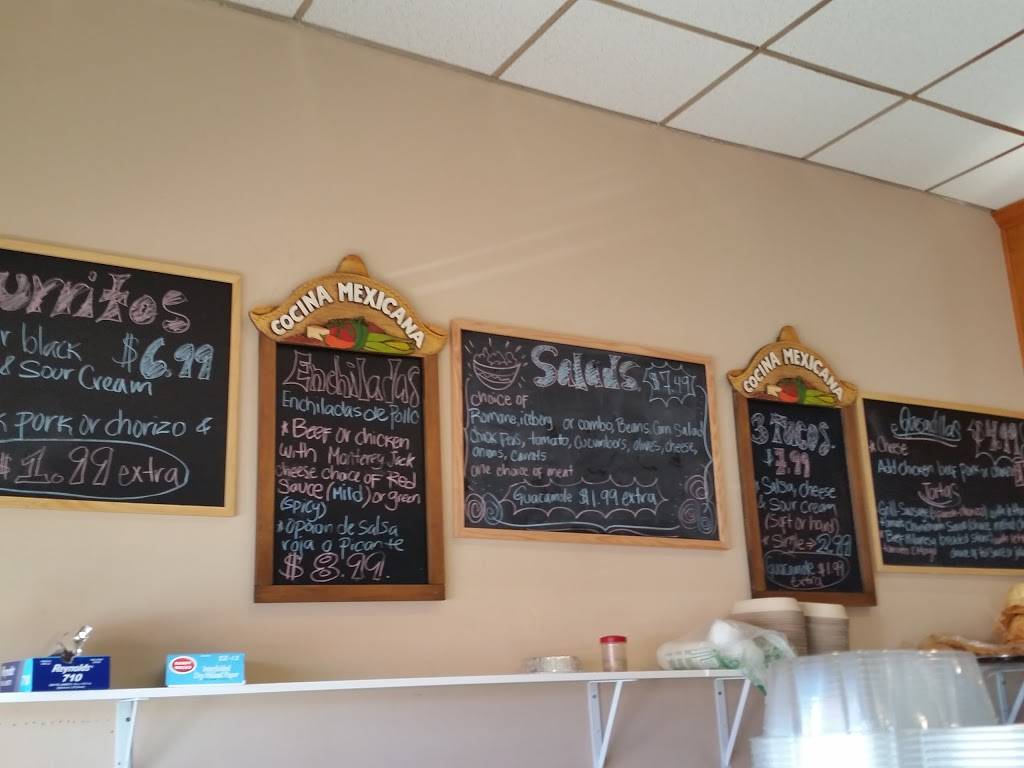 urritos
r black $6.99
& Sour Cream
k pork or chorizo &
$1.99 extra
COCINA MEXICANA
Enchiladas
Enchiladas de Pollo
* Beef or chicken
with Monterey Jack
cheese choice of Red
Sauce (Mild) or green
(spicy)
* opcion de Salsa
roja o Picante
$8.99
Salads $7.49
choice of
Romane, iceberg or combo, Beans, Corn Salad
Chick Peas, tomato, Cucumbers, olives, cheese,
onions, Carrots
one choice of meat
Guacamole $1.99 extra
COCINA MEXICANA
3 Tacos
$7.99
* Salsa, cheese
& Sour Cream
(Soft or hard)
2.99
Guacamole $1.99
extra
Quesadillas $4.99
* Cheese
Add chicken beef pork or
Tortas
Reynolds
710